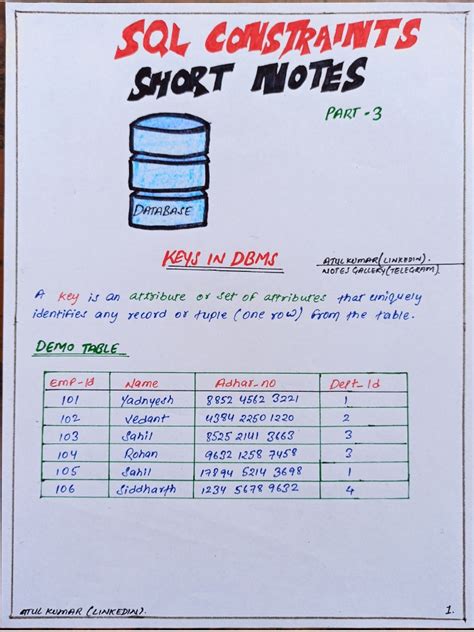 SQL CONSTRAINTS
SHORT NOTES
PART-3
DATABASE
KEYS IN DBMS
ATUL KUMAR (LINKEDIN).
NOTES GALLERY (TELEGRAM)
A key is an attribute or set of attributes that uniquely
identifies any record or tuple (one row) from the table.
DEMO TABLE
Emp-Id Name Adhar-no Dept-Id
101 Yadnyesh 8852 4562 3221 1
102 Vedant 4384 2250 1220 2
103 Sahil 8525 2141 3663 3
104 Rohan 9632 1258 7458 3
105 Sahil 17894 5214 3698 1
106 Siddharth 1234 5678 9632 4
ATUL KUMAR (LINKEDIN).
1.